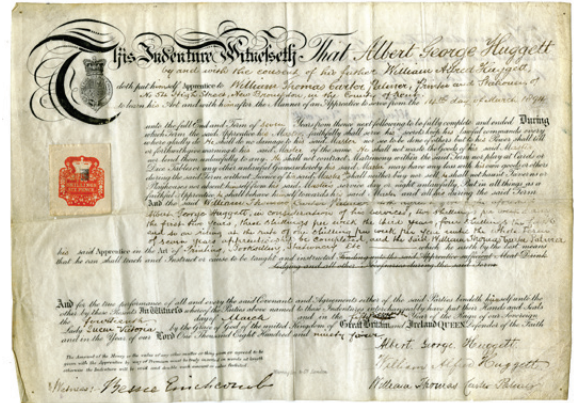 This Indenture Witnesseth That Albert George Huggett
by and with the consent of his father William Alfred Huggett,
doth put himself Apprentice to William Thomas Palmer, Printer and Stationer
High Street, New Brompton, in the County of Kent
to learn his Art and with him after the Manner of an Apprentice to serve from the 14th day of March 1894
unto the full End and Term of Seven Years from thence next following to be fully complete and ended During
which Term the said Apprentice his Master faithfully shall serve his secrets keep his lawful commands every
where gladly do He shall do no damage to his said Master nor see to be done of others but to his Power shall tell
or forthwith give warning to his said Master of the same He shall not waste the Goods of his said Master
nor lend them unlawfully to any He shall not contract Matrimony within the said Term nor play at Cards or
Dice Tables
during the said Term without Licence of his said Master shall neither buy nor sell he shall not haunt Taverns or
Playhouses nor absent himself from his said Master's service day or night unlawfully But in all things as a
faithful Apprentice he shall behave himself towards his said Master and all his during the said Term
And the said William Thomas Palmer
Albert George Huggett, in consideration of his services, Shillings per week
the first two years, Shillings per week the third year,
and so on rising at the rate of one shilling per week per year until the whole Term
of seven years apprenticeship be completed, and the said William Thomas Palmer,
his said Apprentice in the Art of Printing, Bookselling, Stationery &c which he useth by the best means
that he can shall teach and Instruct or cause to be taught and instructed Finding unto the said Apprentice sufficient Meat Drink
Lodging and all other during the said Term
And for the true performance of all and every the said Covenants and Agreements either of the said Parties bindeth himself unto the
other by these Presents In Witness whereof the Parties above named to these Indentures interchangeably have put their Hands and Seals
the fourteenth day of March and in the Year of the Reign of our Sovereign
Lady Queen Victoria by the Grace of God of the United Kingdom of Great Britain and Ireland QUEEN Defender of the Faith
and in the Year of our Lord One Thousand Eight Hundred and ninety four
Albert George Huggett
William Alfred Huggett
William Thomas Palmer
Witness: Bessie